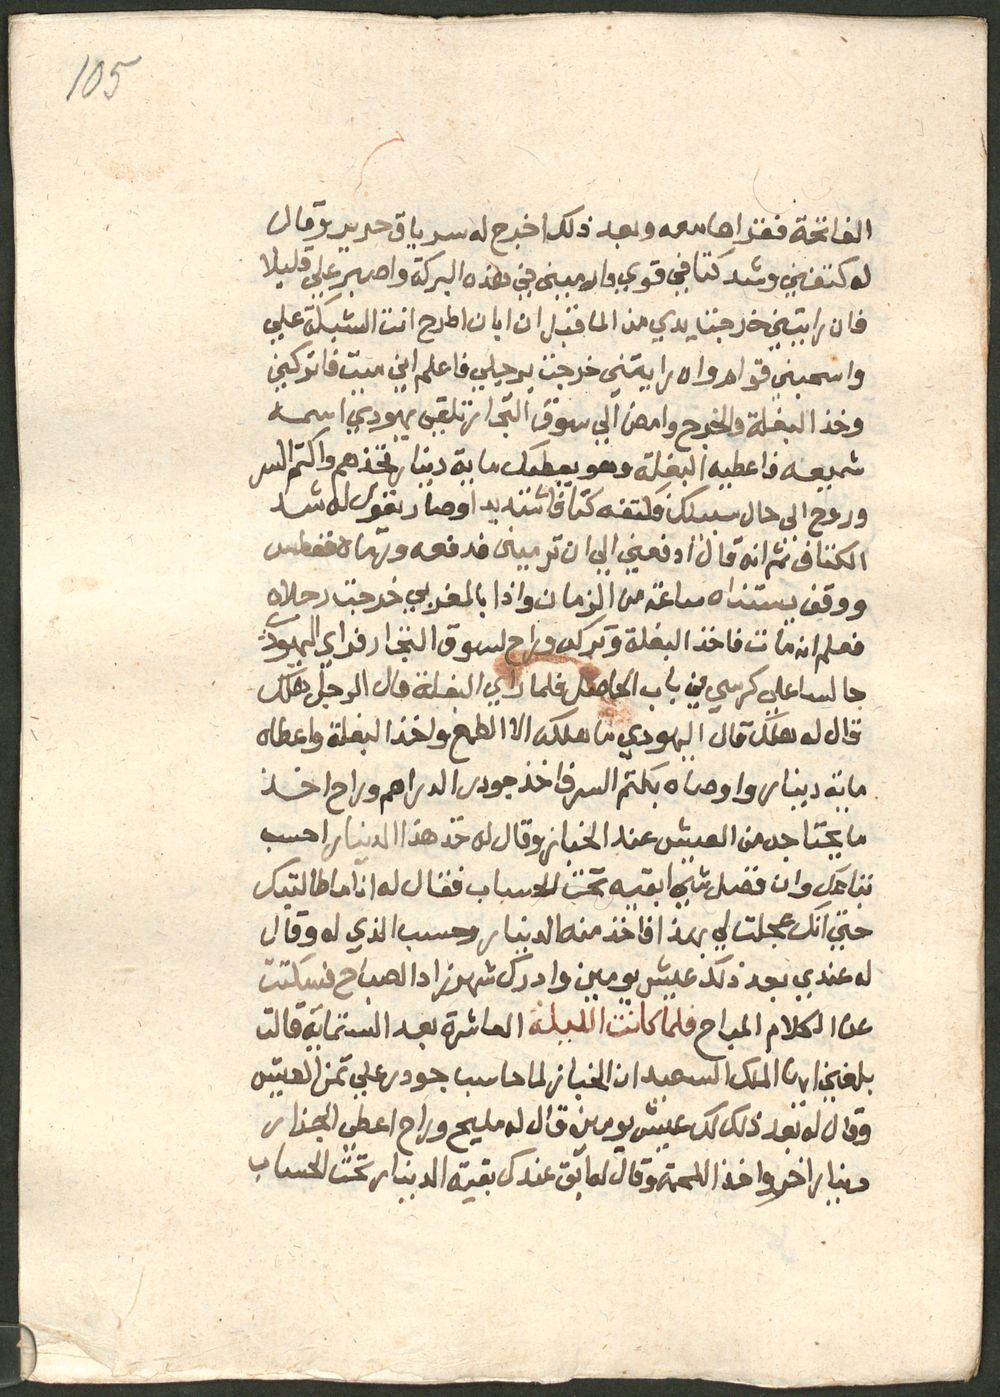 105
الفاتحة فقراها معه وبعد ذلك اخرج له سرياق حرير وقال
له كتفني وشد كتافي قوي وارميني في هذه البركة واصبر علي قليلا
فان رايتني خرجت يدي من الما قبل ان ابان اطرح انت الشبكة علي
واسحبني قوام وان رايتني خرجت برجلي فاعلم اني ميت فاتركني
وخذ البغلة والخرج وامضي الي سوق التجار تلقي يهودي اسمه
شميعه فاعطيه البغلة وهو يعطيك ماية دينار خذهم واكتم السر
وروح الى حال سبيلك فكتفه كتافا شديدا وصار يقول له شد
الكتاف ثم انه قال ادفعني الي ان ترميني فدفعه ورماه فغطس
ووقف يستناه ساعة من الزمان واذا بالمغربي خرجت رجلاه
فعلم انه مات فاخذ البغلة وتركه وراح لسوق التجار فراي اليهودي
جالسا علي كرسي في باب الحاصل فلما راي البغلة قال الرجل هلك
قال له هلك قال اليهودي ما هلكه الا الطمع واخذ البغلة واعطاه
ماية دينار واوصاه بكتم السر فاخذ جودر الدراهم وراح اخذ
ما يحتاجه من العيش عند الخباز وقال له خذ هذا الدينار احسب
بتاعك وان فضل شي ابقيه تحت الحساب فقال له انا ما طالبتك
حتي انك عجلت لي بهذا فاخذ منه الدينار وحسب الذي له وقال
له عندي بعد ذلك عيش يومين وادرك شهرزاد الصباح فسكتت
عن الكلام المباح فلما كانت الليلة العاشرة بعد الستماية قالت
بلغني ايها الملك السعيد ان الخباز لما حاسب جودر علي ثمن العيش
وقال له بعد ذلك لك عيش يومين قال له مليح وراح اعطي الجزار
دينار اخر واخذ اللحمة وقال له ابق عندك بقية الدينار تحت الحساب